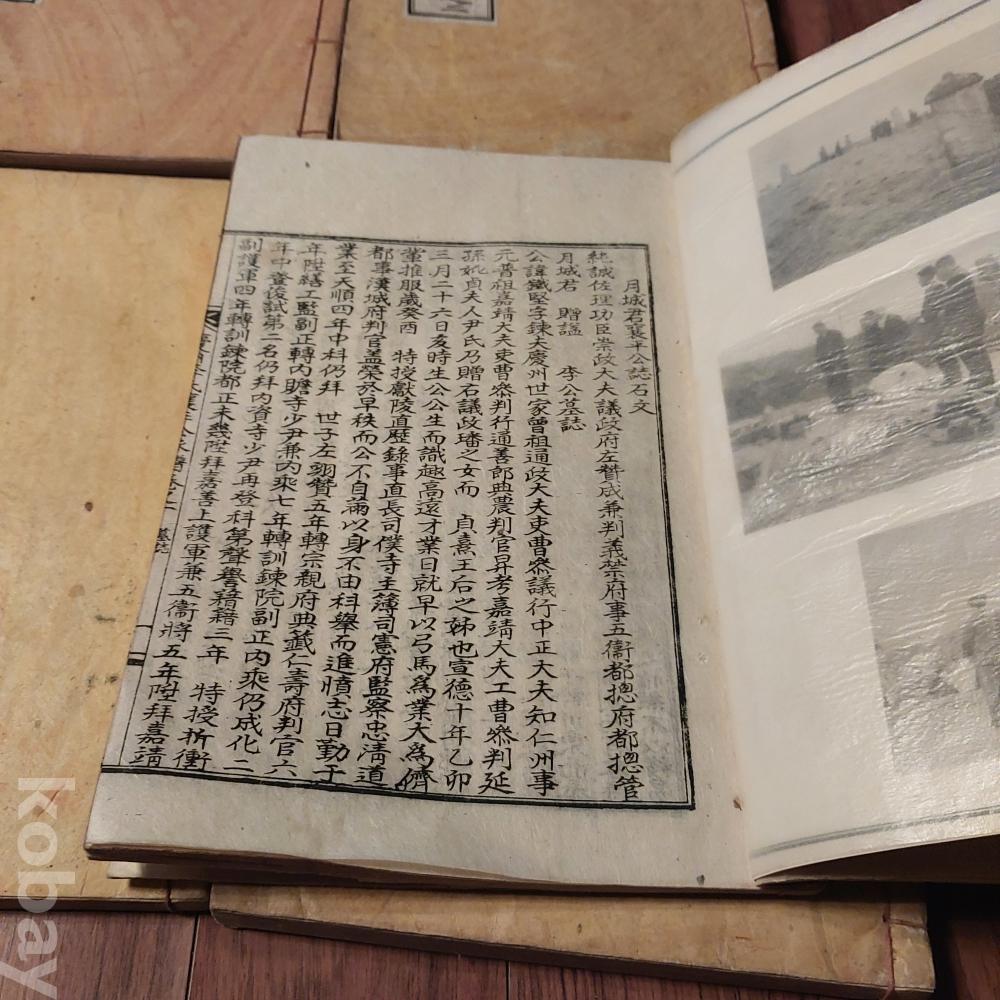 月城君襄平公誌石文
純誠佐理功臣崇政大夫議政府左贊成兼判義禁府事五衛都摠府都摠管
月城君 贈謚 李公墓誌
公諱鐵堅字鍊夫慶州世家曾祖通政大夫吏曹叅議行中正大夫知仁州事
元普祖嘉靖大夫吏曹叅判行通善郎典農判官昇考嘉靖大夫工曹叅判延
孫妣貞夫人尹氏乃贈右議政璠之女而 貞熹王后之姊也宣德十年乙卯
三月二十六日亥時生公公生而識趣高遠才業日就早以弓馬爲業大爲儕
輩推服歲癸酉 特授獻陵直歷錄事直長司僕寺主簿司憲府監察忠淸道
都事漢城府判官盖榮於早秩而公不自滿以身不由科擧而進憤志日勤于
業至天順四年中科仍拜 世子左翊贊五年轉宗親府典籤仁壽府判官六
年陞繕工監副正轉內贍寺少尹兼內乘七年轉訓鍊院副正內乘仍成化二
年中登俊試第二名仍拜內資寺少尹再登科第聲譽藉藉三年 特授折衝
副護軍四年轉訓鍊院都正未幾陞拜嘉善上護軍兼五衛將五年陞拜嘉靖
墓誌
kobay